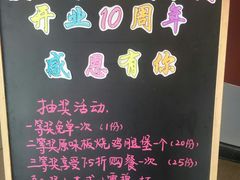 开业10周年
感恩有你
抽奖活动
一等奖免单一次(1份)
二等奖原味板烧鸡腿堡一个(20份)
三等奖享受7.5折购餐一次(25份)